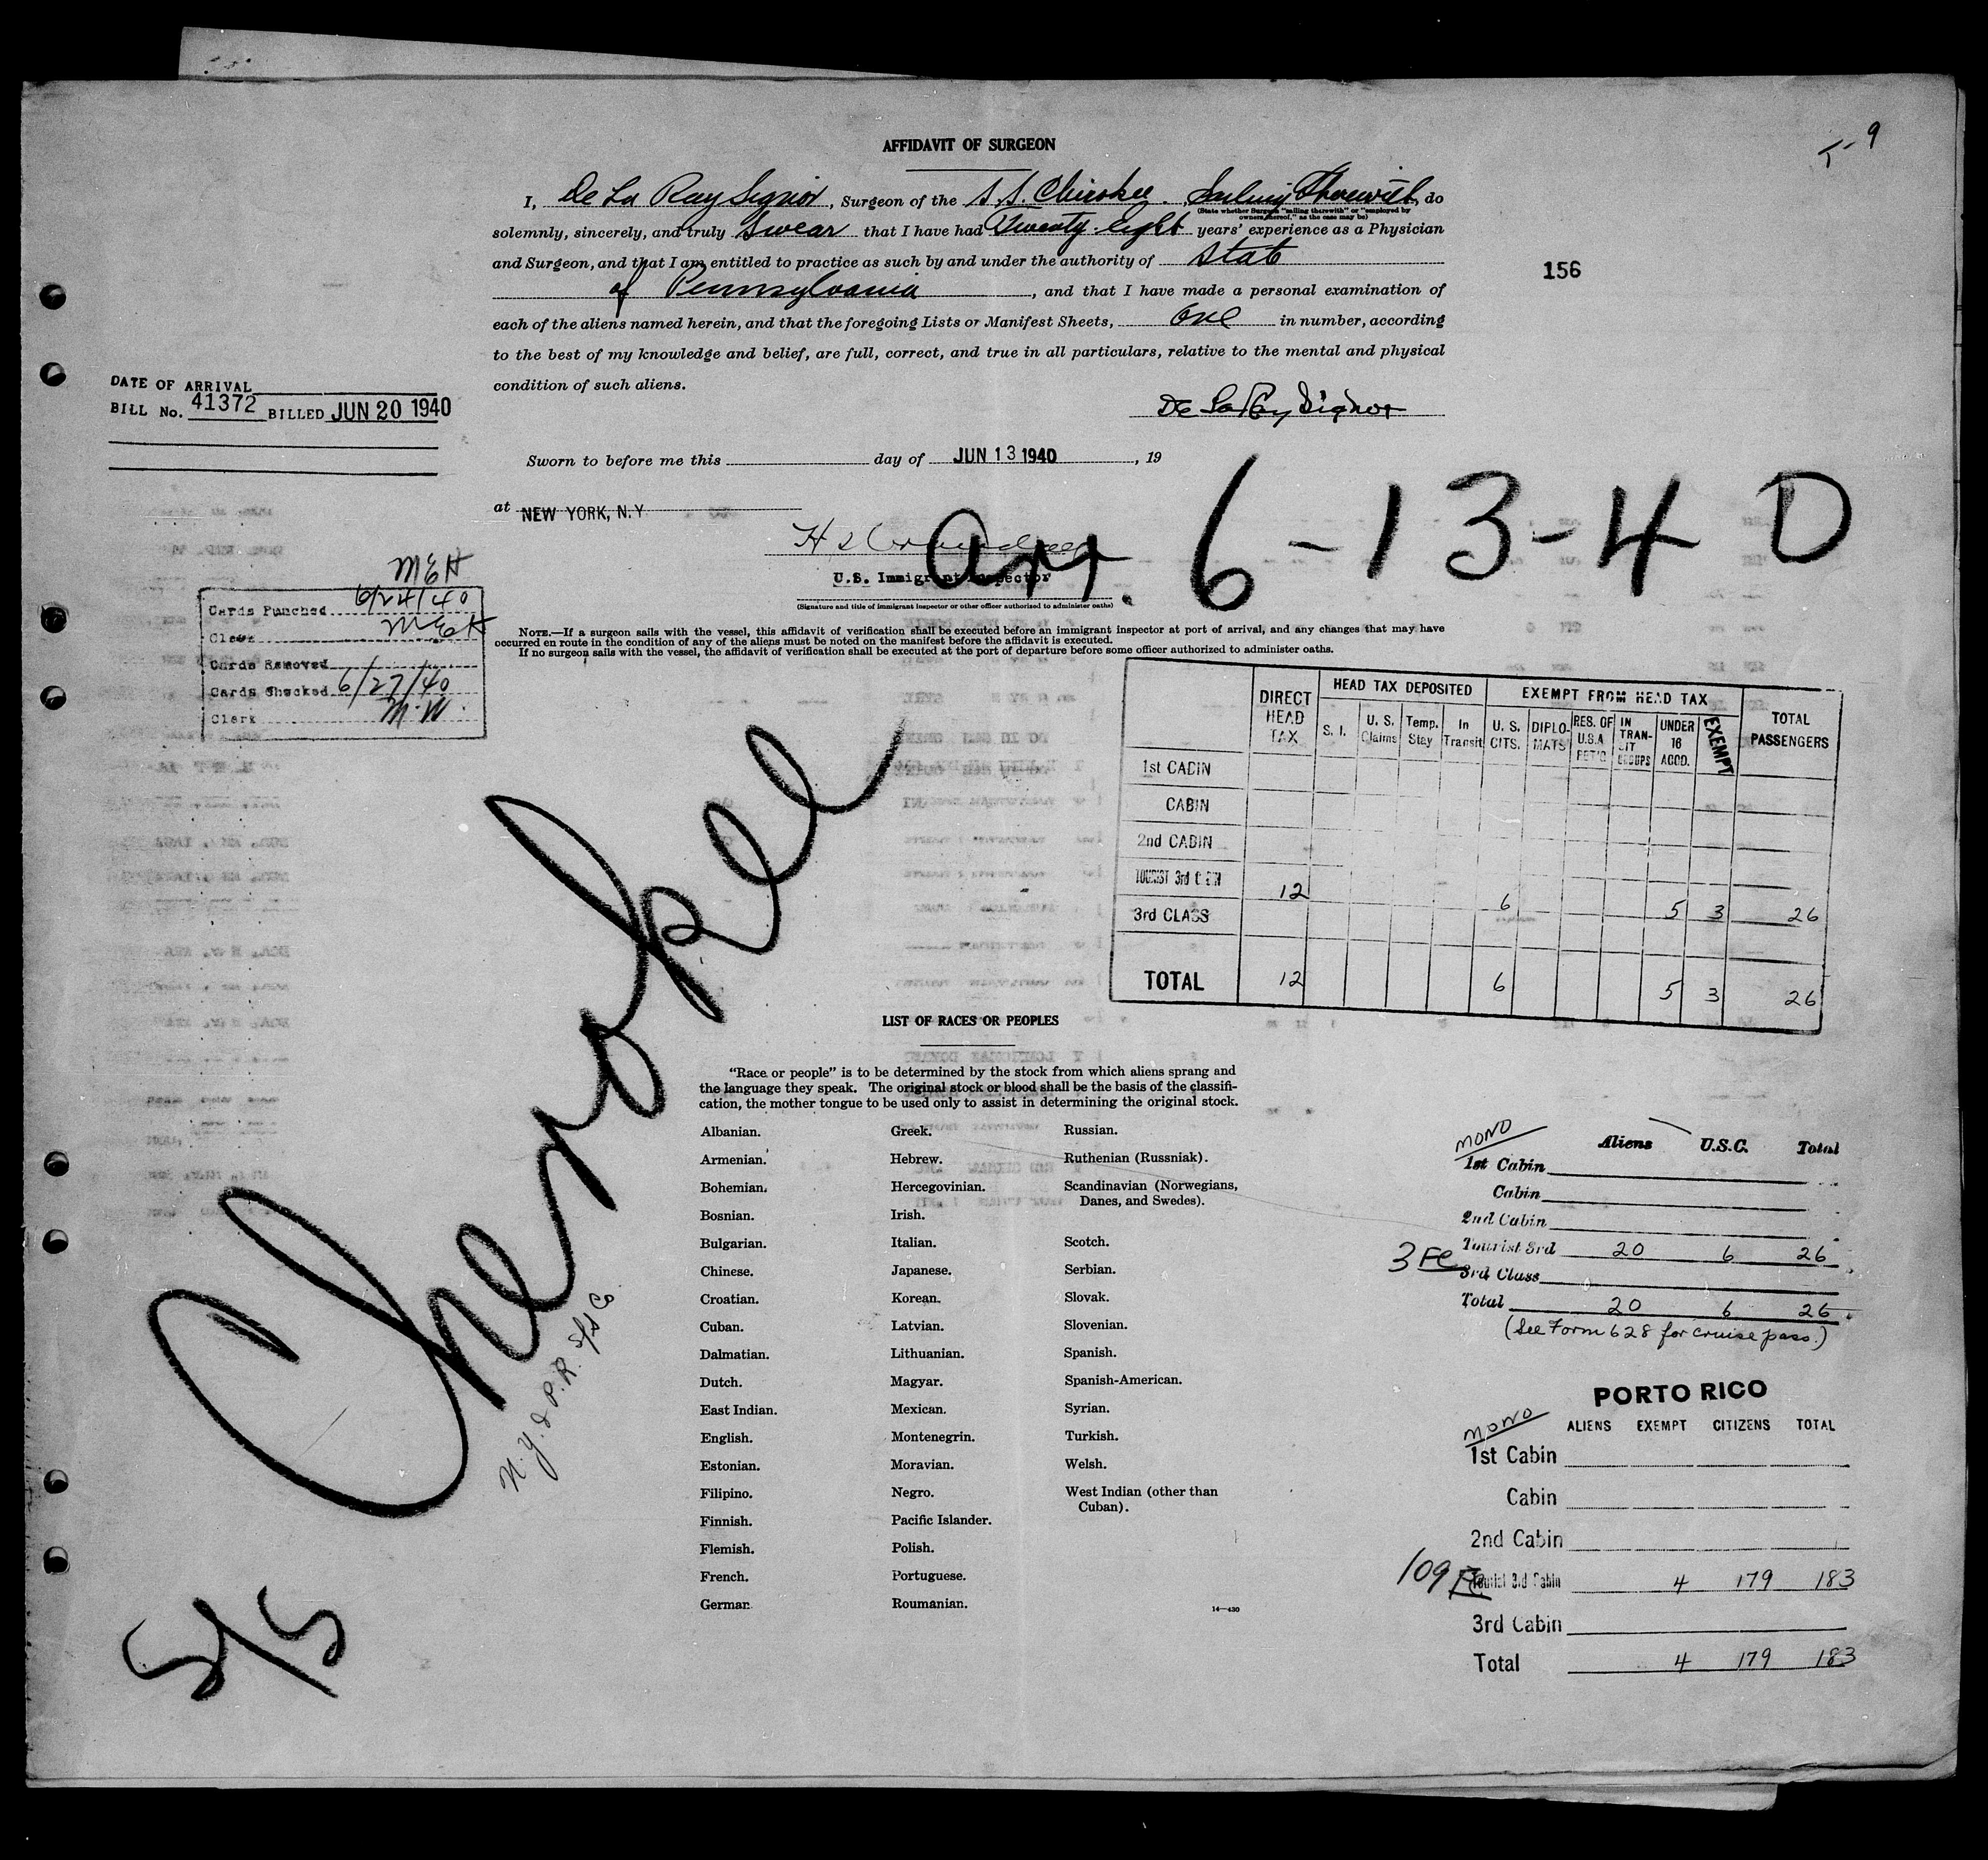 9
AFFIDAVIT OF SURGEON
I, De La Ray Signor, Surgeon of the S.S. Cherokee. Sailing Therewith, do
(State whether Surgeon "sailing therewith" or "employed by
owners thereof," as the case may be)
solemnly, sincerely, and truly swear that I have had Twenty-eight years' experience as a Physician
and Surgeon, and that I am entitled to practice as such by and under the authority of State
of Pennsylvania, and that I have made a personal examination of
each of the aliens named herein, and that the foregoing Lists or Manifest Sheets, One in number, according
to the best of my knowledge and belief, are full, correct, and true in all particulars, relative to the mental and physical
condition of such aliens.
156
De La Ray Signor
DATE OF ARRIVAL
BILL No. 41372 BILLED JUN 20 1940
Sworn to before me this day of JUN 13 1940, 19
at NEW YORK, N.Y
Arr. 6-13-40
U.S. Immigrant Inspector
(Signature and title of immigrant inspector or other officer authorized to administer oaths)
NOTE.—If a surgeon sails with the vessel, this affidavit of verification shall be executed before an immigrant inspector at port of arrival, and any changes that may have
occurred en route in the condition of any of the aliens must be noted on the manifest before the affidavit is executed.
If no surgeon sails with the vessel, the affidavit of verification shall be executed at the port of departure before some officer authorized to administer oaths.
MEH
Cards Punched 6/24/40
Clerk MEH
Cards Removed
Cards Checked 6/27/40
Clerk M.W.
DIRECT HEAD TAX
HEAD TAX DEPOSITED
EXEMPT FROM HEAD TAX
TOTAL PASSENGERS
S. I. U. S. Claims Temp. Stay In Transit U. S. CITS. DIPLOMATS RES. OF U.S.A RET'G IN TRANSIT GROUPS UNDER 16 ACCD. EXEMPT
1st CABIN
CABIN
2nd CABIN
TOURIST 3rd CABIN 12 6 5 3 26
3rd CLASS
TOTAL 12 6 5 3 26
S/S Cherokee
N.Y. & P.R. S/S Co
LIST OF RACES OR PEOPLES
"Race or people" is to be determined by the stock from which aliens sprang and
the language they speak. The original stock or blood shall be the basis of the classifi-
cation, the mother tongue to be used only to assist in determining the original stock.
Albanian.
Armenian.
Bohemian.
Bosnian.
Bulgarian.
Chinese.
Croatian.
Cuban.
Dalmatian.
Dutch.
East Indian.
English.
Estonian.
Filipino.
Finnish.
Flemish.
French.
German.
Greek.
Hebrew.
Hercegovinian.
Irish.
Italian.
Japanese.
Korean.
Latvian.
Lithuanian.
Magyar.
Mexican.
Montenegrin.
Moravian.
Negro.
Pacific Islander.
Polish.
Portuguese.
Roumanian.
Russian.
Ruthenian (Russniak).
Scandinavian (Norwegians,
Danes, and Swedes).
Scotch.
Serbian.
Slovak.
Slovenian.
Spanish.
Spanish-American.
Syrian.
Turkish.
Welsh.
West Indian (other than
Cuban).
14—430
MONO Aliens U.S.C. Total
1st Cabin
Cabin
2nd Cabin
Tourist 3rd 20 6 26
3 Fe 3rd Class
Total 20 6 26
(See Form 628 for cruise pass.)
PORTO RICO
MONO ALIENS EXEMPT CITIZENS TOTAL
1st Cabin
Cabin
2nd Cabin
109 Fe Tourist 3rd Cabin 4 179 183
3rd Cabin
Total 4 179 183